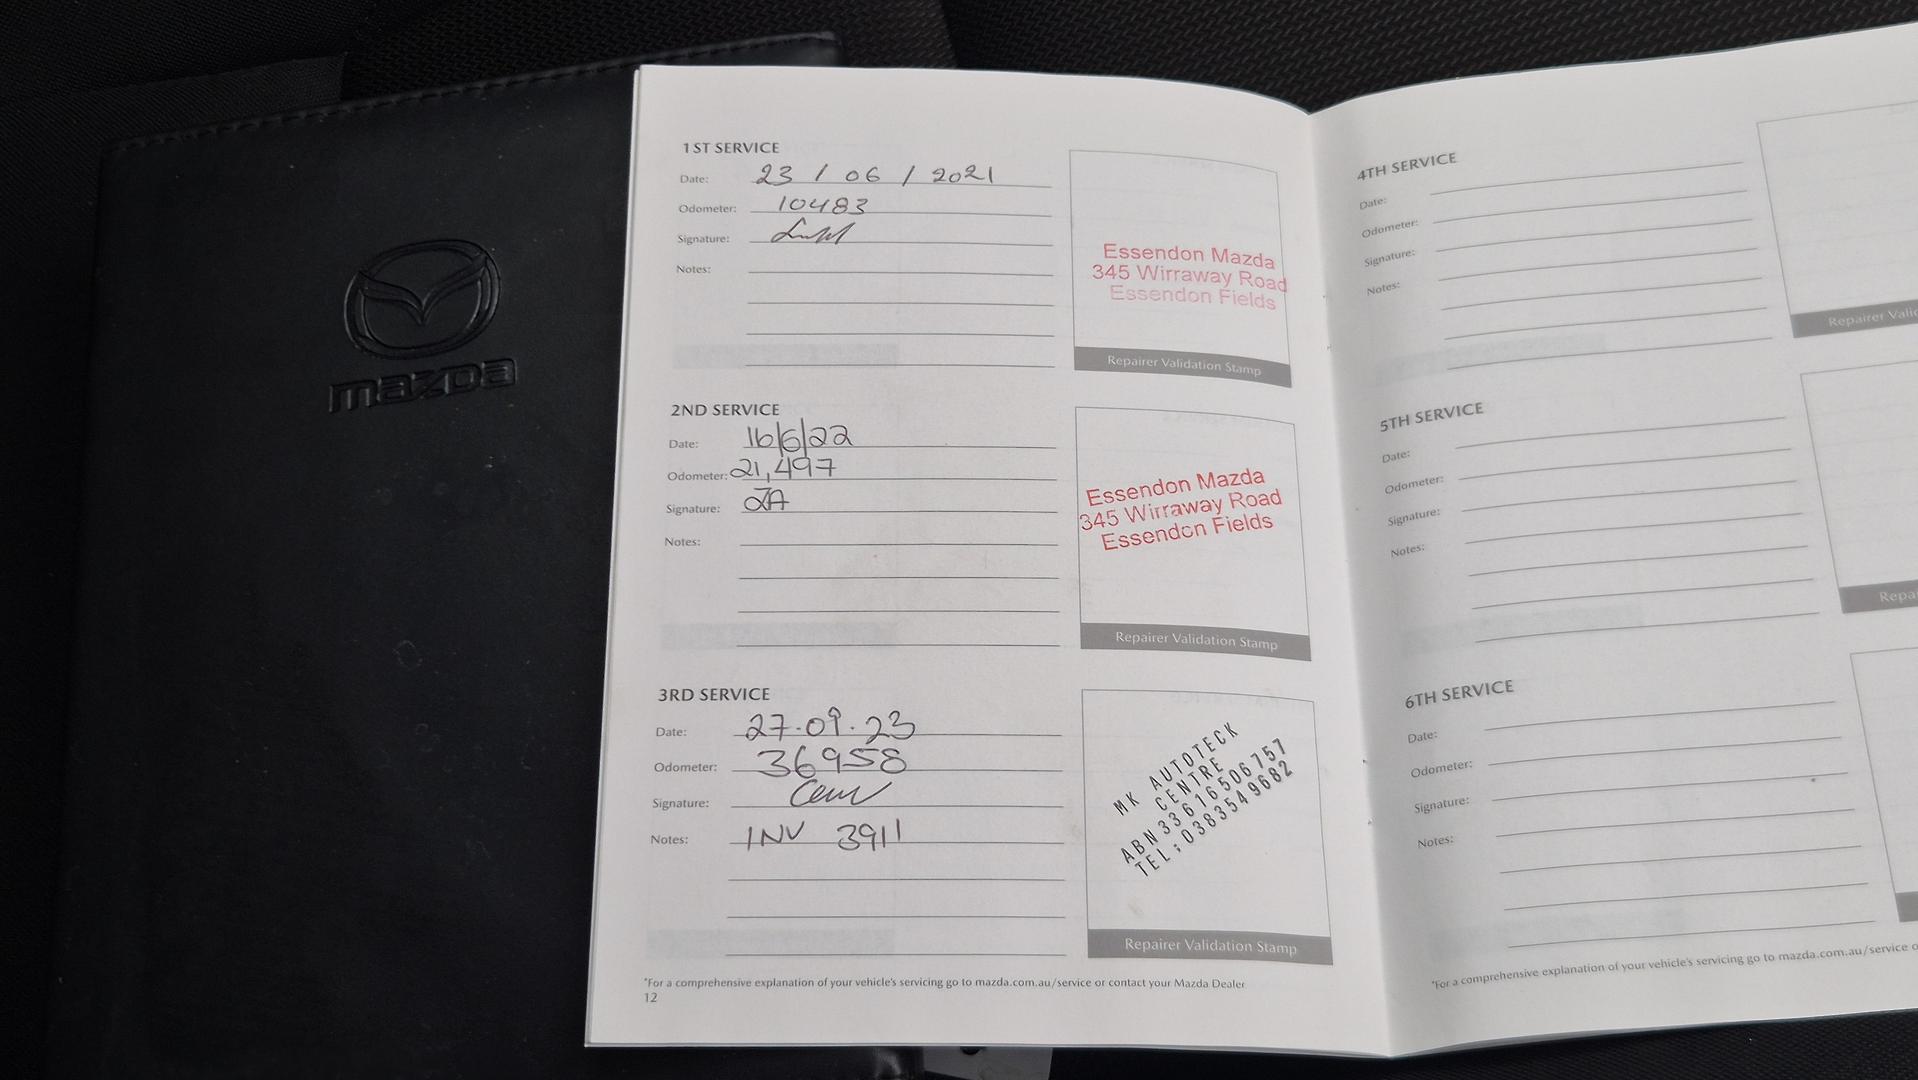 mazda
1ST SERVICE
Date: 23 / 06 / 2021
Odometer: 10483
Signature:
Notes:
Essendon Mazda
345 Wirraway Road
Essendon Fields
Repairer Validation Stamp
2ND SERVICE
Date: 16/6/22
Odometer: 21,497
Signature: JA
Notes:
Essendon Mazda
345 Wirraway Road
Essendon Fields
Repairer Validation Stamp
3RD SERVICE
Date: 27.09.23
Odometer: 36958
Signature:
Notes: INV 3911
MK AUTOTECK
CENTRE
ABN 33616506757
TEL: 0383549682
Repairer Validation Stamp
*For a comprehensive explanation of your vehicle's servicing go to mazda.com.au/service or contact your Mazda Dealer
12
4TH SERVICE
Date:
Odometer:
Signature:
Notes:
Repairer
5TH SERVICE
Date:
Odometer:
Signature:
Notes:
6TH SERVICE
Date:
Odometer:
Signature:
Notes:
*For a comprehensive explanation of your vehicle's servicing go to mazda.com.au/service